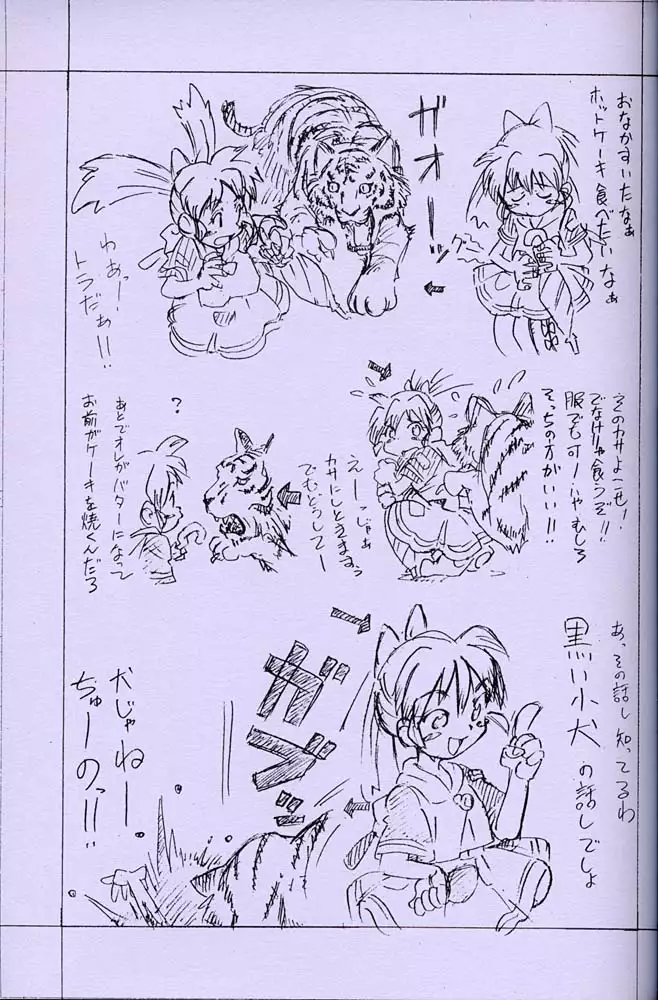 おなかすいたなぁ
ホットケーキ食べたいなぁ
グー
ガオー!
わぁっ!
トラだぁ!!
そのカサよこせ!
でなけりゃ食うぞ!!
服でも可!いやむしろ
そっちの方がいい!!
えーっじゃぁ
カサにしときますぅ
でもどうしてー
?
あとでオレがバターになって
お前がケーキを焼くんだろ
あっその話し知ってるわ
黒い小犬の話しでしょ
ガブッ
犬じゃねー
ちゅーのっ!!